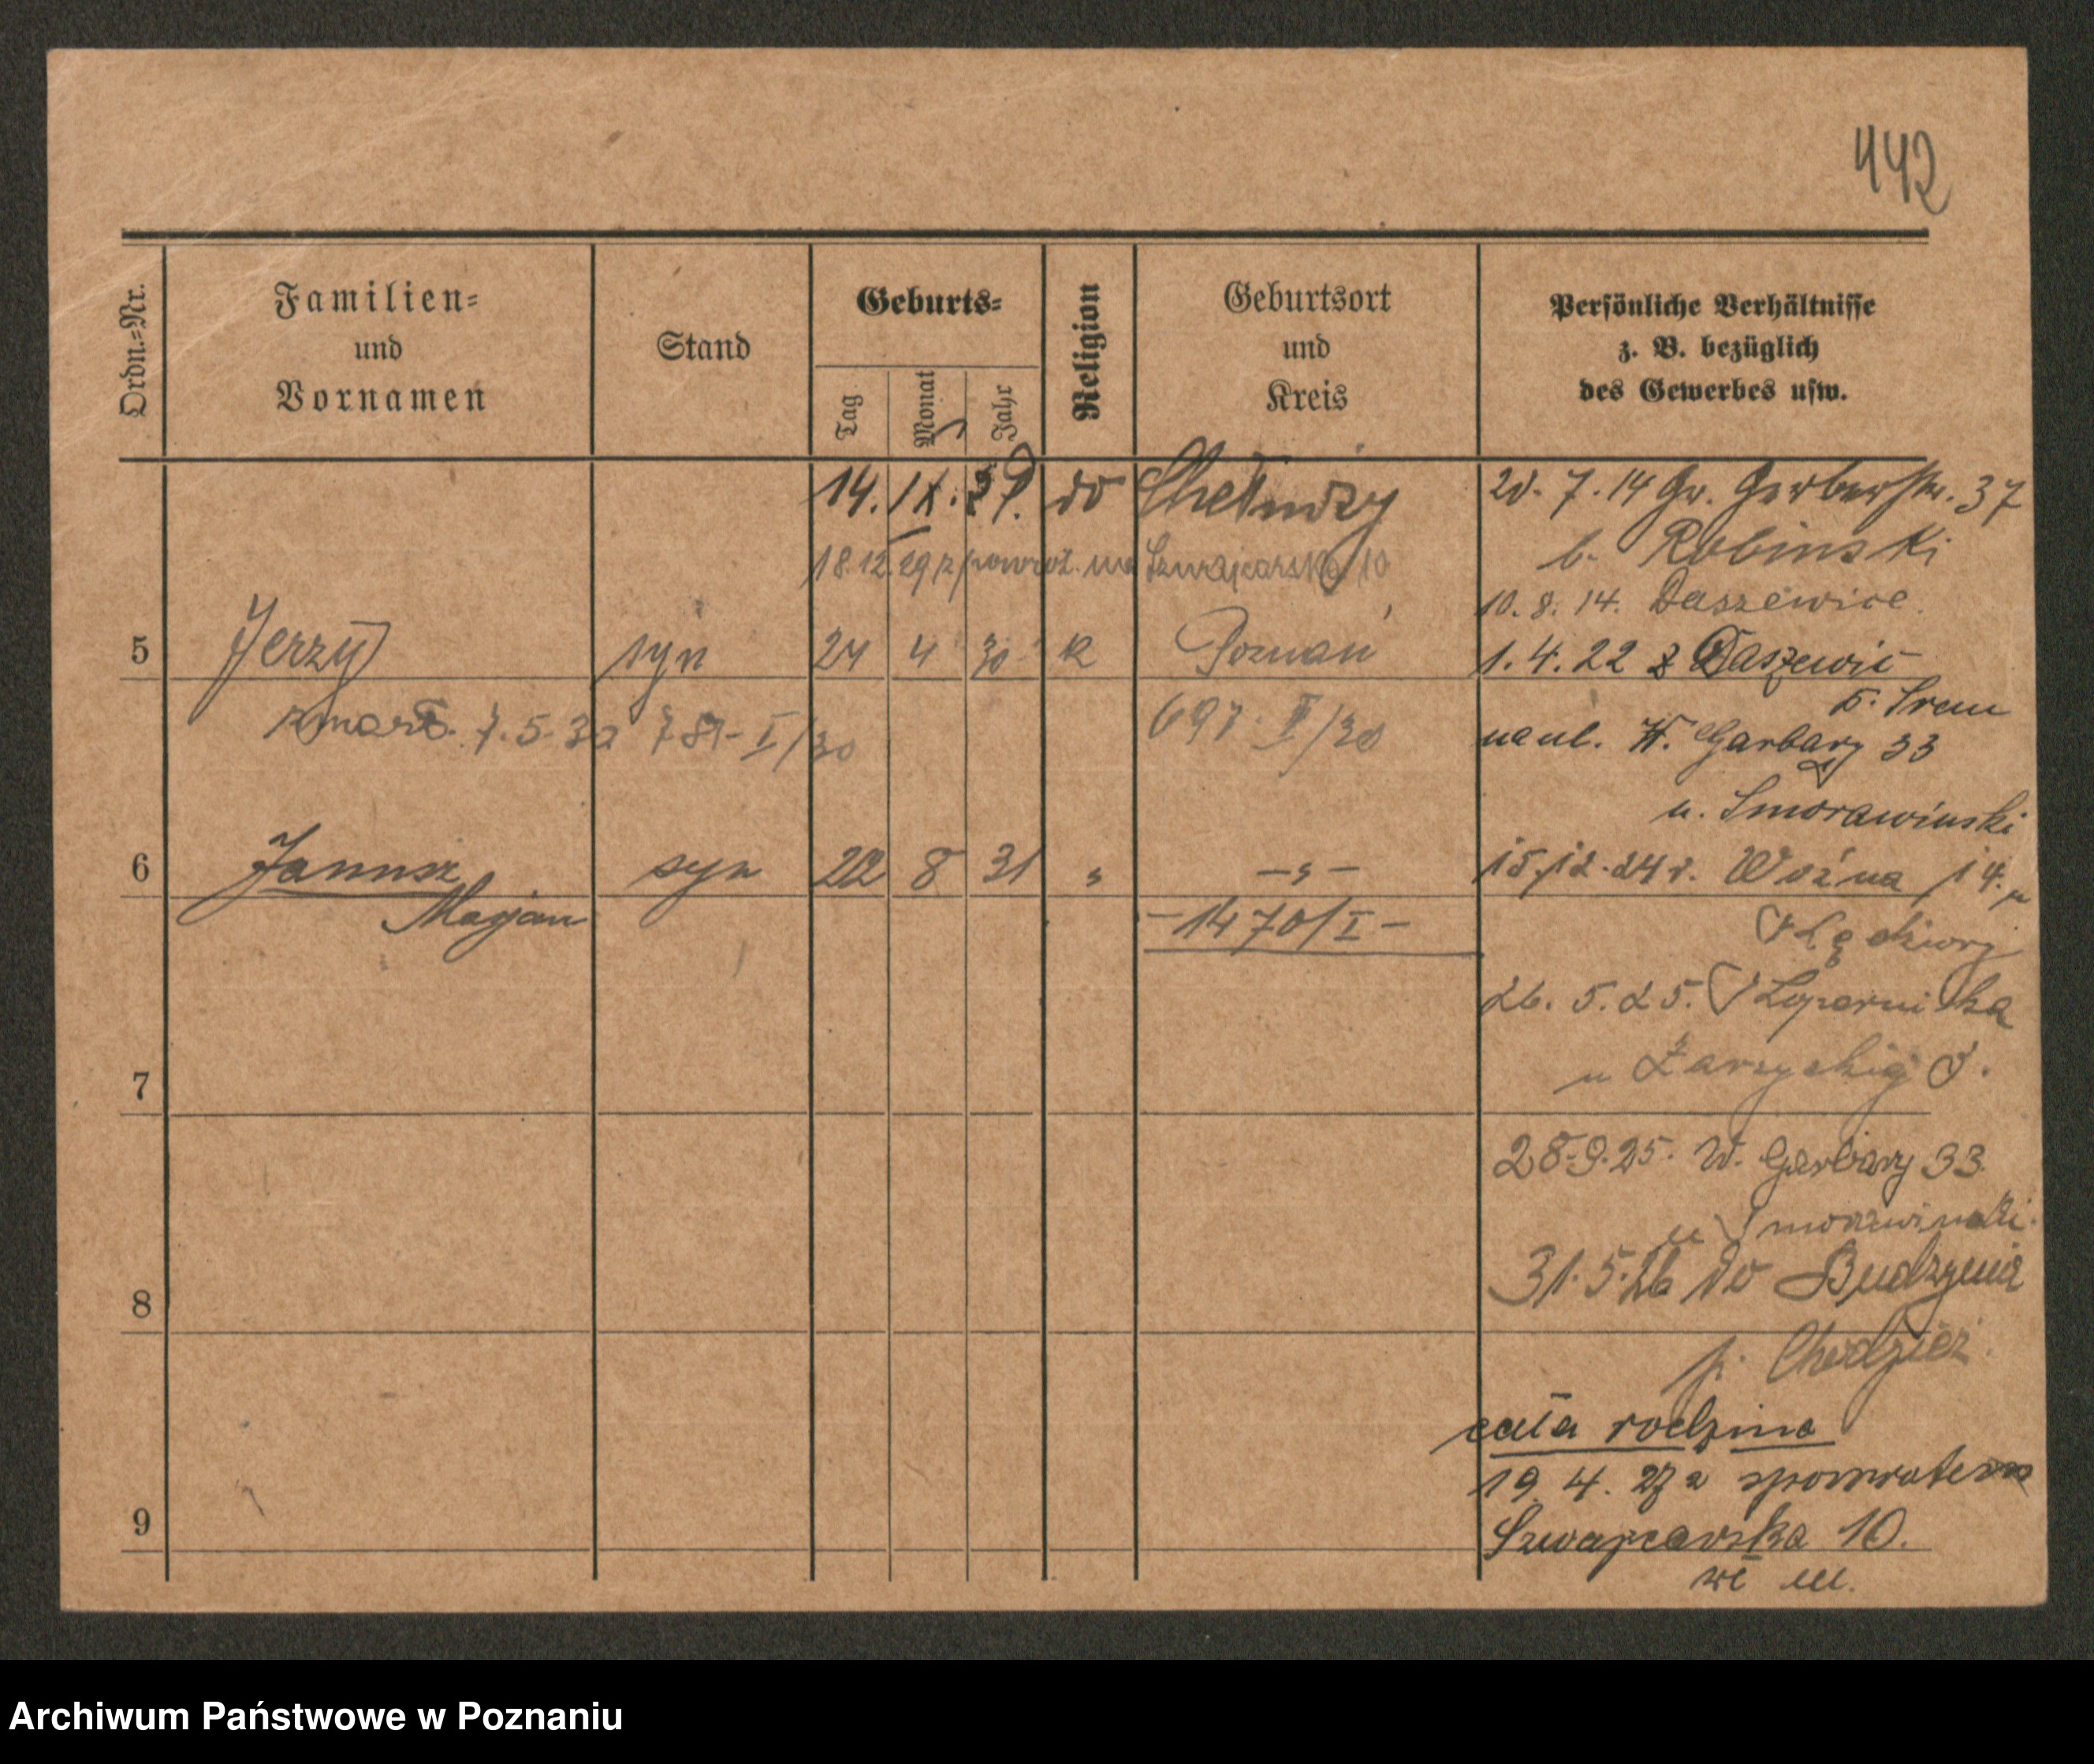 442
Ordn.=Nr.
Familien=
und
Vornamen
Stand
Geburts=
Tag
Monat
Jahr
Religion
Geburtsort
und
Kreis
Persönliche Verhältnisse
z. B. bezüglich
des Gewerbes usw.
14. IX. 29. do Chełmży
18.12.29 z powrot. na Szwajcarska 10
5 Jerzy syn 24 4 30 k Poznań
zmarł. 7.5.30 781-I/30
697 II/30
6 Janusz syn 22 8 31 " — " —
Marjan
-1470/I-
7
8
9
20. 7. 14 Gr. Gerberstr. 37
b. Robinski
10. 8. 14. Daszewice
1. 4. 22 z Daszewic
p. Śrem
na ul. W. Garbary 33
u. Smorawinski
15.12.24 r. Woźna 14. u
26. 5. 25.
u Zarzyckiej
28.9.25. W. Garbary 33
u Smorawinski.
31.5.26 do Budzynia
p. Chodzież.
cała rodzina
19. 4. 27 z spowrotem
Szwajcarska 10.
Archiwum Państwowe w Poznaniu